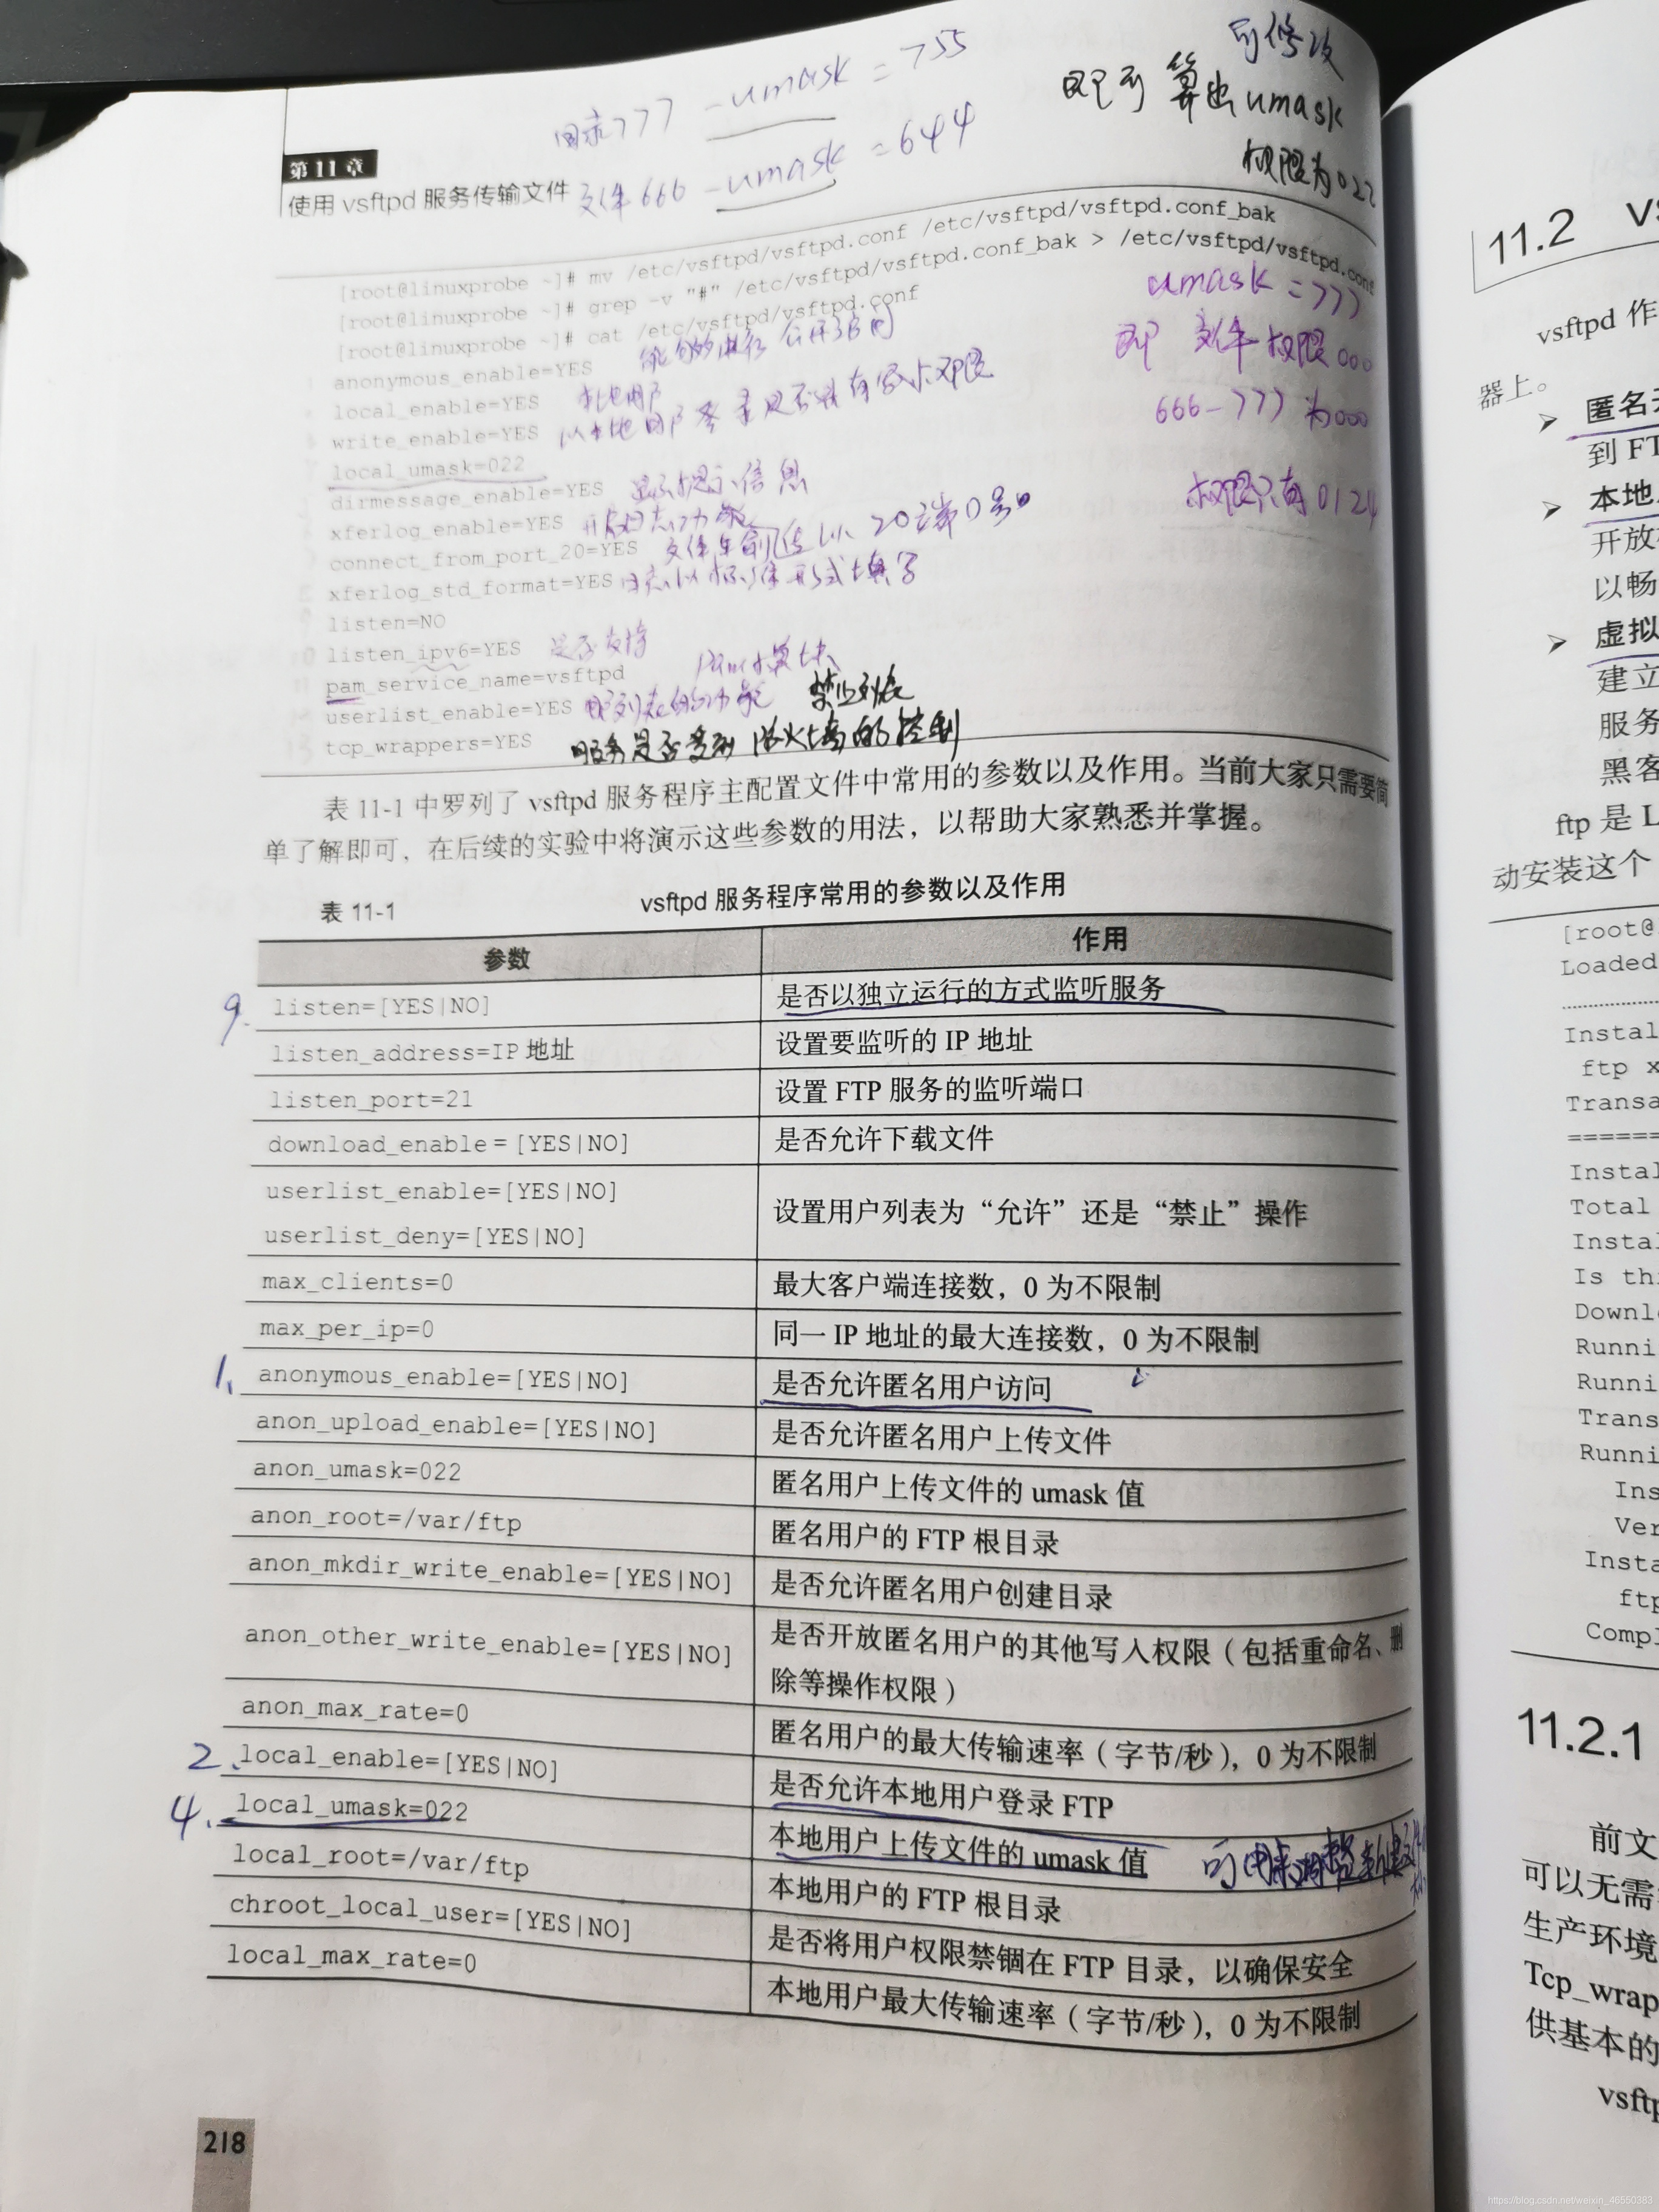 可修改
目录777 -umask = 755
即可算出umask
文件666 -umask = 644
权限为022
第11章
使用 vsftpd 服务传输文件
[root@linuxprobe ~]# mv /etc/vsftpd/vsftpd.conf /etc/vsftpd/vsftpd.conf_bak
[root@linuxprobe ~]# grep -v "#" /etc/vsftpd/vsftpd.conf_bak > /etc/vsftpd/vsftpd.conf
[root@linuxprobe ~]# cat /etc/vsftpd/vsftpd.conf
umask =777
anonymous_enable=YES
即 文件权限000
local_enable=YES 本地用户
write_enable=YES
666-777 为000
local_umask=022
dirmessage_enable=YES 显示提示信息
权限只有0124
xferlog_enable=YES 开启日志功能
connect_from_port_20=YES
xferlog_std_format=YES 日志以标准形式填写
listen=NO
listen_ipv6=YES 是否支持
pam_service_name=vsftpd pam模块
userlist_enable=YES 禁止列表
tcp_wrappers=YES 服务是否受到防火墙的控制
表 11-1 中罗列了 vsftpd 服务程序主配置文件中常用的参数以及作用。当前大家只需要简
单了解即可，在后续的实验中将演示这些参数的用法，以帮助大家熟悉并掌握。
表 11-1 vsftpd 服务程序常用的参数以及作用
参数 作用
9. listen=[YES|NO] 是否以独立运行的方式监听服务
listen_address=IP 地址 设置要监听的 IP 地址
listen_port=21 设置 FTP 服务的监听端口
download_enable＝[YES|NO] 是否允许下载文件
userlist_enable=[YES|NO]
设置用户列表为“允许”还是“禁止”操作
userlist_deny=[YES|NO]
max_clients=0 最大客户端连接数，0 为不限制
max_per_ip=0 同一 IP 地址的最大连接数，0 为不限制
1、anonymous_enable=[YES|NO] 是否允许匿名用户访问
anon_upload_enable=[YES|NO] 是否允许匿名用户上传文件
anon_umask=022 匿名用户上传文件的 umask 值
anon_root=/var/ftp 匿名用户的 FTP 根目录
anon_mkdir_write_enable=[YES|NO] 是否允许匿名用户创建目录
anon_other_write_enable=[YES|NO] 是否开放匿名用户的其他写入权限（包括重命名、删
除等操作权限）
anon_max_rate=0 匿名用户的最大传输速率（字节/秒），0 为不限制
2、local_enable=[YES|NO] 是否允许本地用户登录 FTP
4. local_umask=022 本地用户上传文件的 umask 值
local_root=/var/ftp 本地用户的 FTP 根目录
chroot_local_user=[YES|NO] 是否将用户权限禁锢在 FTP 目录，以确保安全
local_max_rate=0 本地用户最大传输速率（字节/秒），0 为不限制
218
11.2
vsftpd 作
器上。
匿名
到 FT
本地
开放
以畅
虚拟
建立
服务
黑客
ftp 是 L
动安装这个
[root@
Loaded
Instal
ftp x
Transa
======
Instal
Total
Instal
Is thi
Downl
Runni
Runni
Trans
Runni
Ins
Ver
Insta
ftp
Compl
11.2.1
前文
可以无需
生产环境
Tcp_wrap
供基本的
vsftp
https://blog.csdn.net/weixin_46550383